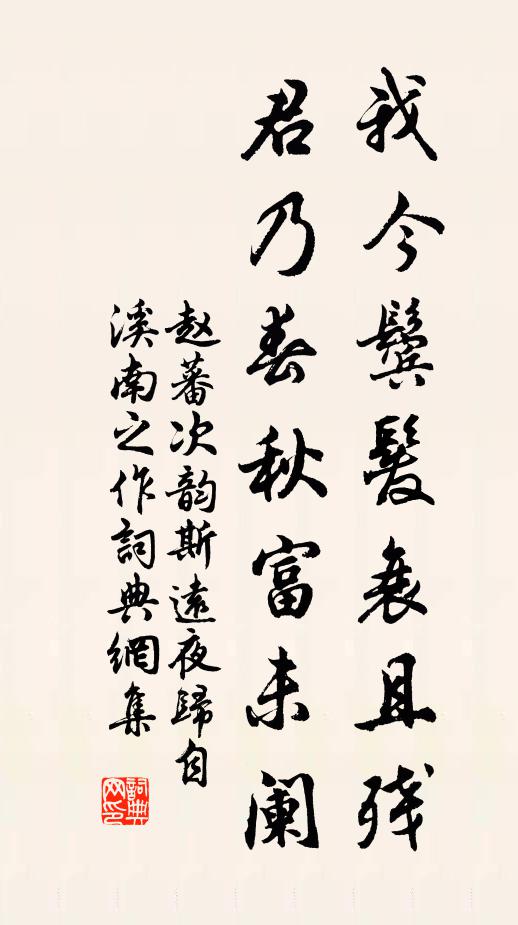 我今鬓髮衰且残
君乃春秋富未阑
赵蕃次韵斯遠夜歸自
溪南之作詞典網集
詞典
网印